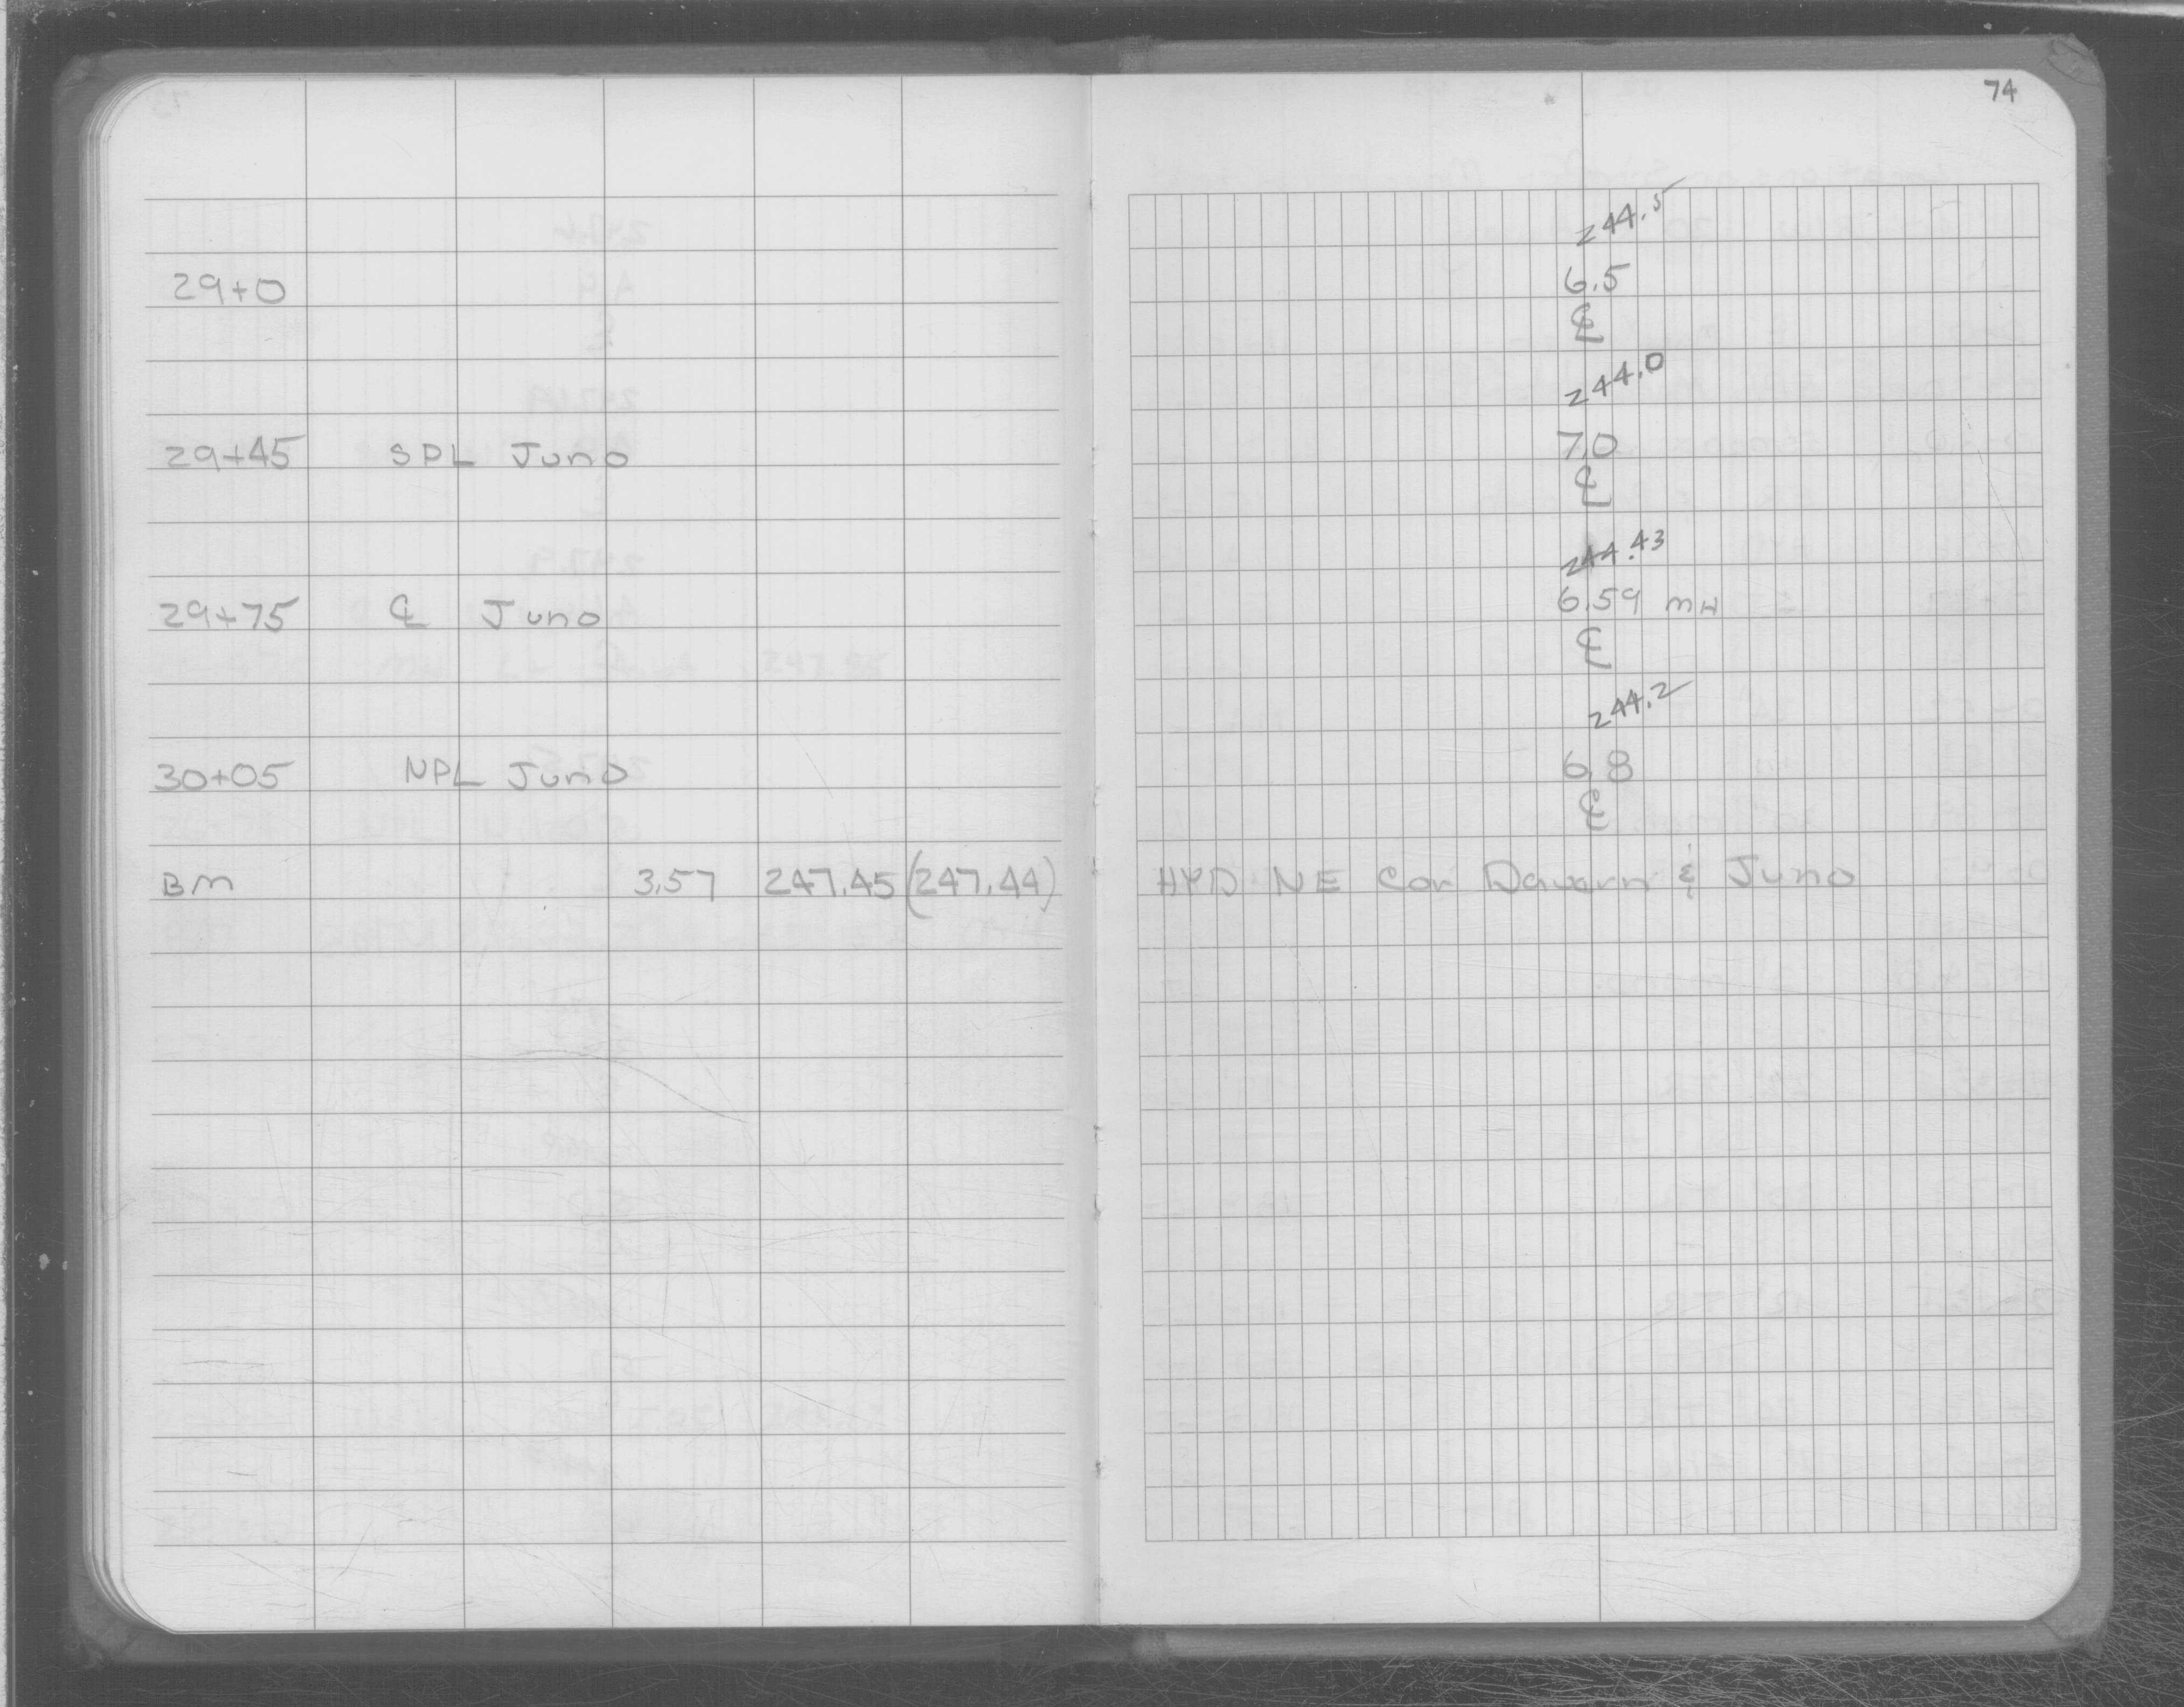 74
244.5
29+0 6.5
℄
244.0
29+45 SPL Juno 7.0
℄
244.43
29+75 ℄ Juno 6.59 MH
℄
244.2
30+05 NPL Juno 6.8
℄
BM 3.57 247.45 (247.44) HYD NE Cor Davern & Juno